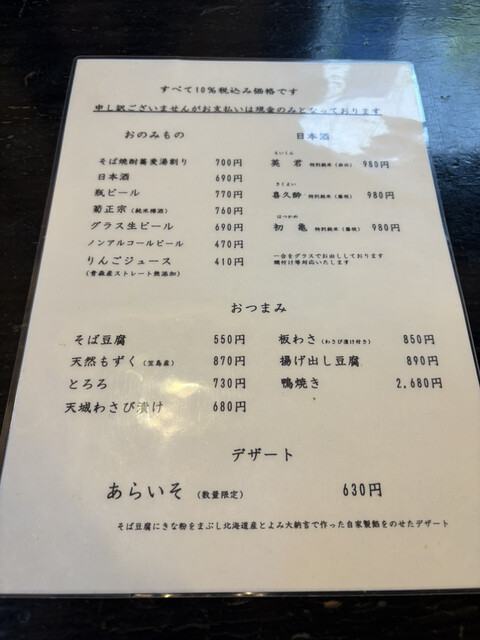 すべて10%税込み価格です
申し訳ございませんがお支払いは現金のみとなっております
おのみもの
そば焼酎蕎麦湯割り 700円
日本酒 690円
瓶ビール 770円
菊正宗（純米樽酒） 760円
グラス生ビール 690円
ノンアルコールビール 470円
りんごジュース 410円
（青森産ストレート無添加）
日本酒
えいくん
英 君 特別純米（由比） 980円
きくよい
喜久酔 特別純米（藤枝） 980円
はつかめ
初 亀 特別純米（藤枝） 980円
一合をグラスでお出ししております
燗付け等対応いたします
おつまみ
そば豆腐 550円
天然もずく 870円
とろろ 730円
天城わさび漬け 680円
板わさ（わさび漬け付き） 850円
揚げ出し豆腐 890円
鴨焼き 2,680円
デザート
あらいそ （数量限定） 630円
そば豆腐にきな粉をまぶし北海道産とよみ大納言で作った自家製餡をのせたデザート